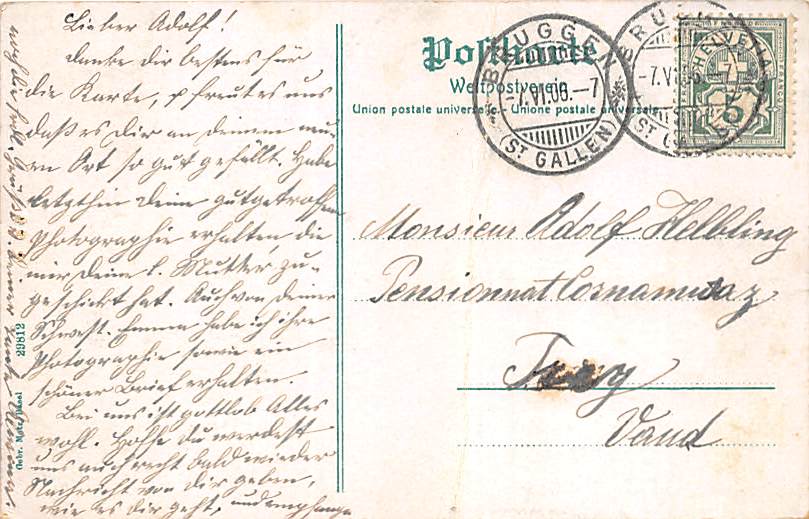 Lieber Adolf!
danke dir bestens für
die Karte, & freut es uns
daß es dir an deinem neu-
en Ort so gut gefällt. Habe
letzthin deine gutgetroffene
Photographie erhalten, die
mir deine l. Mutter zu-
geschickt hat. Auch von deiner
Schwest. Emma habe ich ihre
Photographie sowie ein
schöner Brief erhalten.
Bei uns ist gottlob Alles
wohl. Hoffe du werdest
uns auch recht bald wieder
Nachricht von dir geben,
wie es dir geht, und empfange
Postkarte
Weltpostverein
Union postale universelle - Unione postale universale
BRUGGEN
-7.VI.06.-7
(ST GALLEN)
BRUGGEN
-7.VI.06.-7
(ST GALLEN)
HELVETIA
5
Monsieur Adolf Helbling
Pensionnat Cornamusaz
Trey
Vaud
29812
Gebr. Metz, Basel